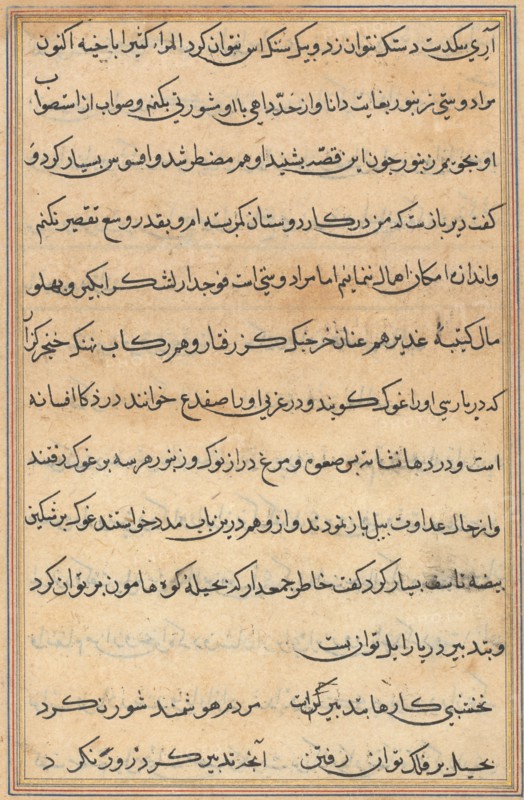 آری بیکدست دستک نتوان زد و بیک سنک اس نتوان کرد المراء کثیرا باخیه اکنون
مرا دوستی زنبور بغایت دانا واز حد داهی با او مشورتی بکنم وصواب از استصواب
او بجویم زنبور چون این قصه بشنید او هم مضطر شد و افسوس بسیار کرد و
کفت دیر بازست که من در کار دوستان کمر بسته ام و بقدر وسع تقصیر نکنم
واندازه امکان اهمال ننمایم اما مرا دوستی است فوجدار لشکر ابکیر و پهلو
مال کتیبه غدیر هم عنان خرچنک کز رفتار و هم رکاب نهنک خنجر کزار
که در پارسی اورا غوک کویند و در عربی اورا ضفدع خوانند در ذکا افسانه
است و در دها نشانه پس صعوه و مرغ دراز نوک و زنبور هر سه بر غوک رفتند
واز حال عداوت پیل باز نمودند واز و هم درین باب مدد خواستند غوک بر شکستن
بیضه تاسف بسیار کرد کفت خاطر جمع دار که بحیله کوه هامون بر توان کرد
و بتدبیر دریا را پل توان بست
نخشبی کارها بتدبیر کن مردم هوشمند شور نکرد
بحیل بر فلک توان رفتن آنچه تدبیر کرد زور نکرد